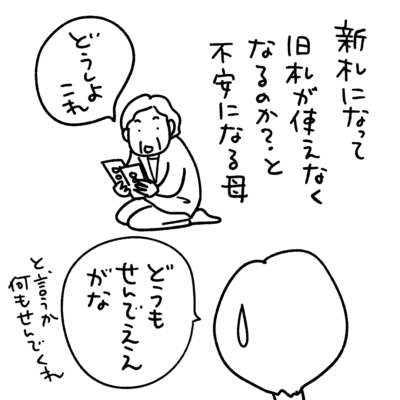 新札になって
旧札が使えなく
なるのか?と
不安になる母
どうしよ
これ
どうも
せんでええ
がな
と、言うか
何もせんでくれ